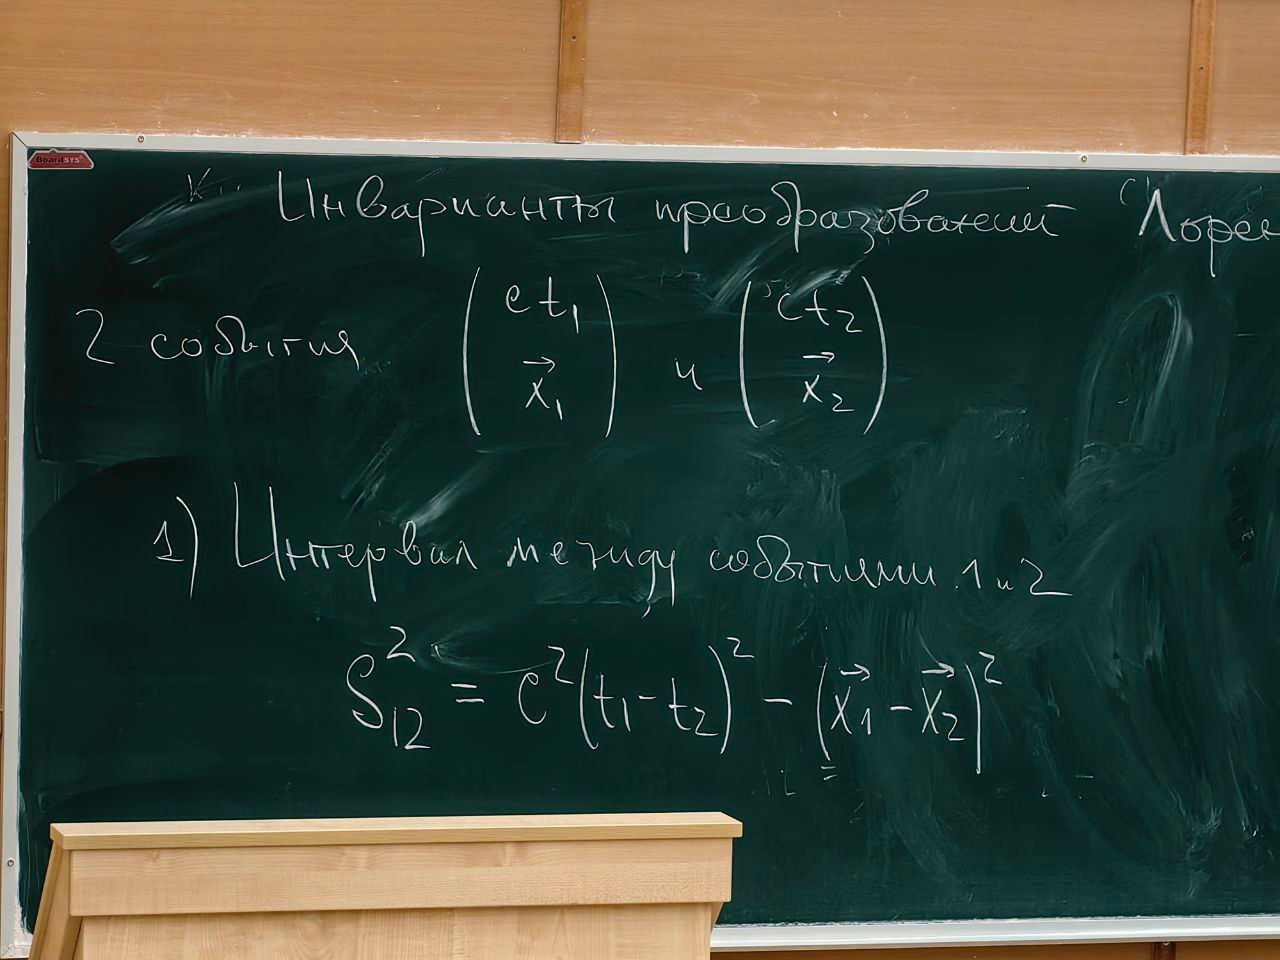 BoardSYS
Инварианты преобразований Лорен
2 события (ct₁ x⃗₁) и (ct₂ x⃗₂)
1) Интервал между событиями 1 и 2
S₁₂² = c²(t₁ - t₂)² - (x⃗₁ - x⃗₂)²